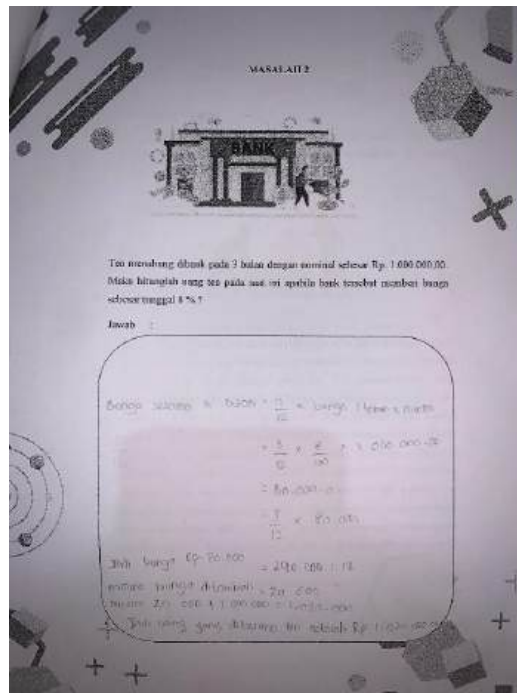 MASALAH 2
BANK
Teo menabung dibank pada 3 bulan dengan nominal sebesar Rp. 1.000.000,00.
Maka hitunglah uang teo pada saat ini apabila bank tersebut memberi bunga
sebesar tunggal 8 % ?
Jawab :
Bunga selama n bulan = n/12 × bunga 1 tahun ×
= 3/12 × 8/100 × 1.000.000,00
= 80.000,0
= 3/12 × 80.000
Jadi bunga Rp. 20.000 = 240.000 : 12
= 20.000
20.000 + 1.000.000 = 1.020.000
Jadi uang yang diterima teo sebesar Rp. 1.020.000,00